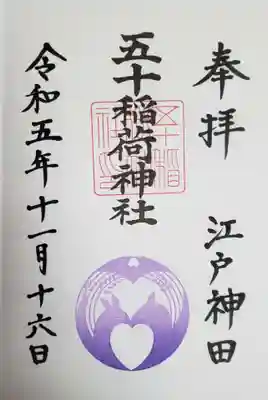 奉拝
江戸神田
五十稲荷神社
令和五年十一月十六日